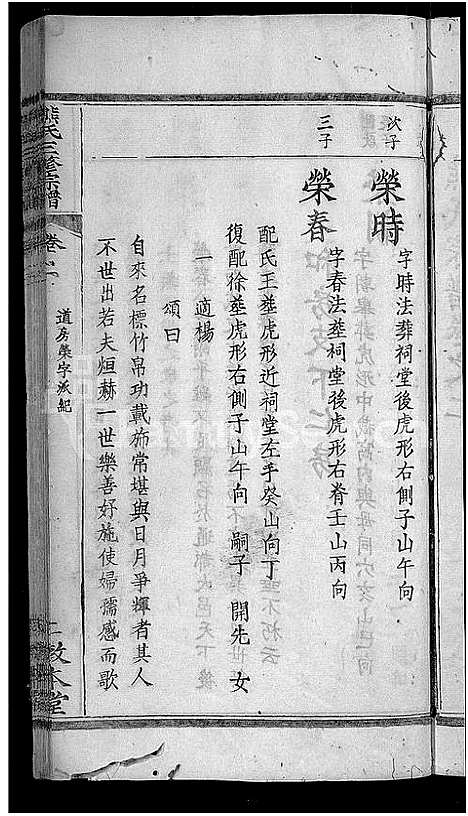 次子
榮時
字時法葬祠堂後虎形右側子山午向
三子
榮春
字春法塟祠堂後虎形右脊壬山丙向
配氏王塟虎形近祠堂左手癸山向丁
復配徐塟虎形右側子山午向 嗣子 開先 女
一 適楊
頌曰
自來名標竹帛功載旂常堪與日月爭輝者其人
不世出若夫烜赫一世樂善好施使婦孺感而歌
熊氏三修宗譜
卷
道房榮字派紀
敦本堂